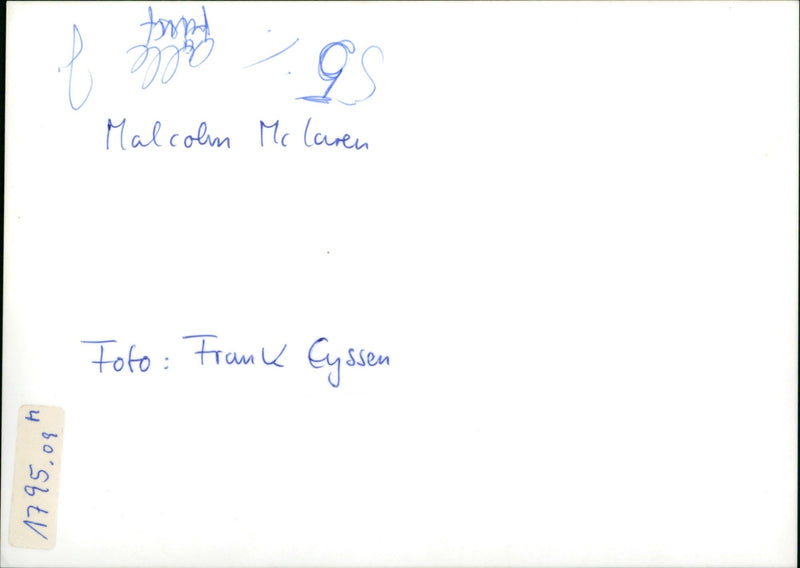 alle
Malcolm Mc laren
Foto: Frank Eyssen
1795.09 M